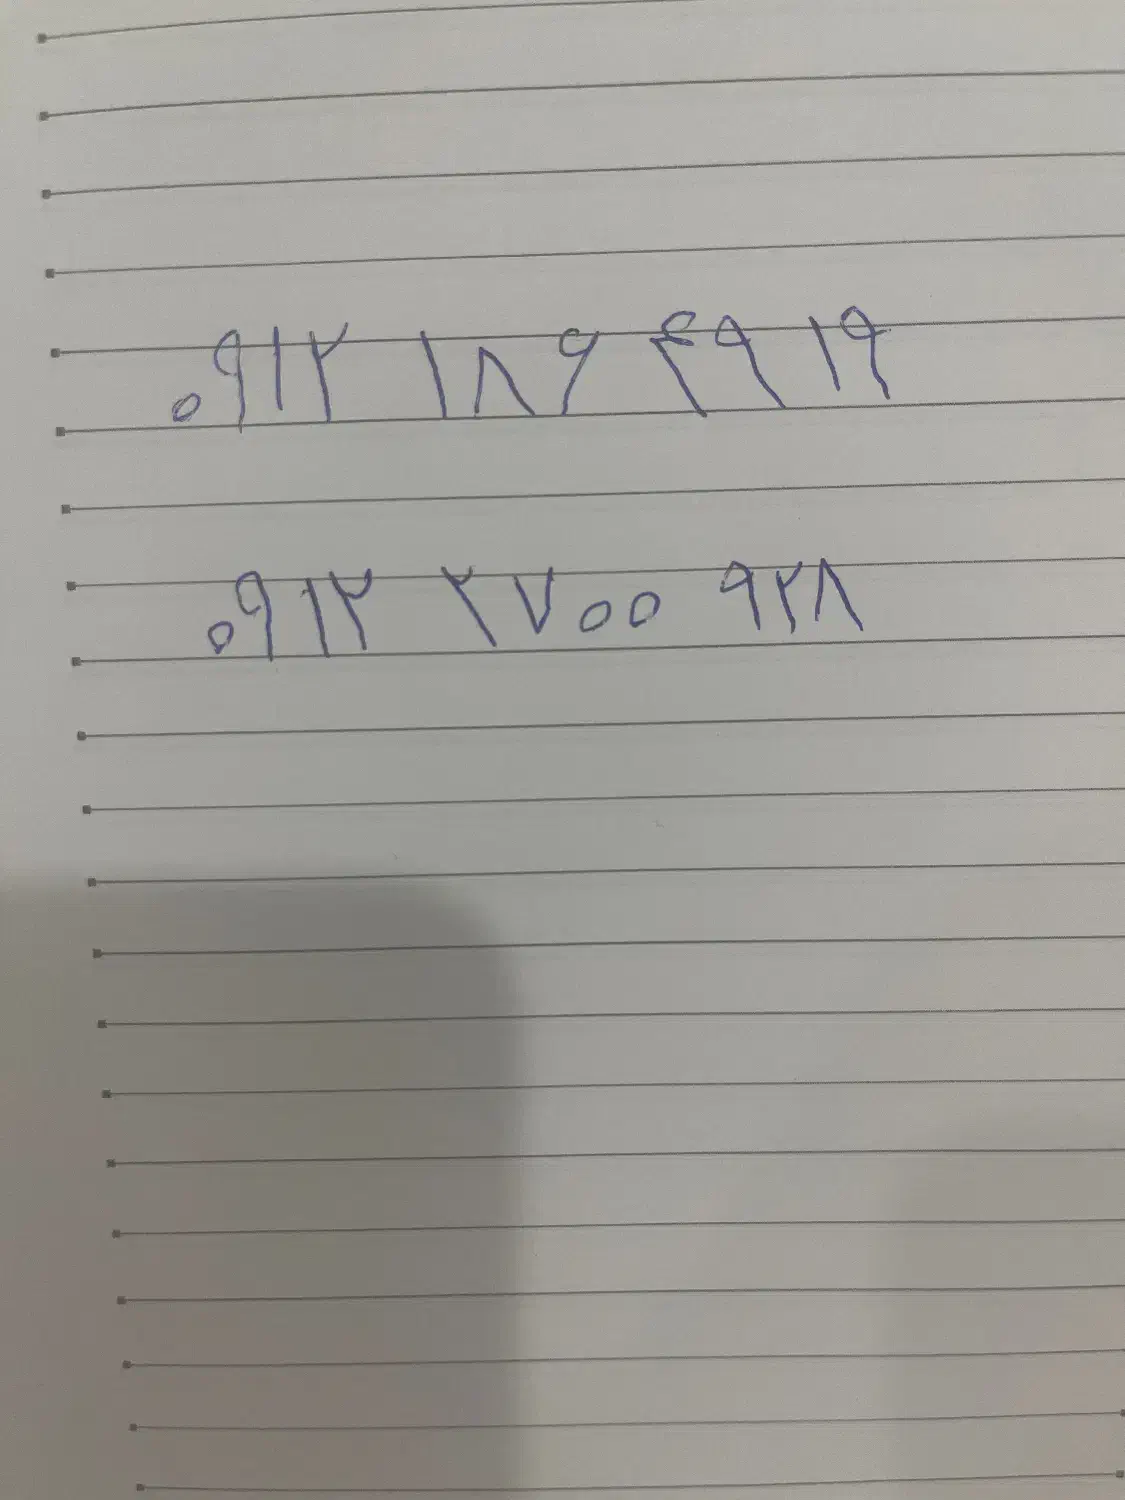 ۰۹۱۲ ۱۸۶ ۴۹ ۱۹
۰۹۱۲ ۲۷۰۰ ۹۲۸